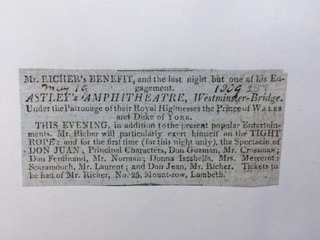 Mr. RICHER's BENEFIT, and the last night but one of his En-
gagement.
May 19
ASTLEY's AMPHITHEATRE, Westminster-Bridge.
Under the Patronage of their Royal Highnesses the Prince of WALES
and Duke of YORK.
THIS EVENING, in addition to the present popular Entertain-
ments. Mr. Richer will particularly exert himself on the TIGHT
ROPE: and for the time (for this night only), the Spectacle of
DON JUAN, Principal Characters, Don Guzman, Mr. Crossman;
Don Ferdinand, Mr. Norman; Donna Isabella, Mrs. Mercerot;
Scaramouch, Mr. Laurent; and Don Juan, Mr. Richer. Tickets to
be had of Mr. Richer, No. 25, Mount-row, Lambeth.